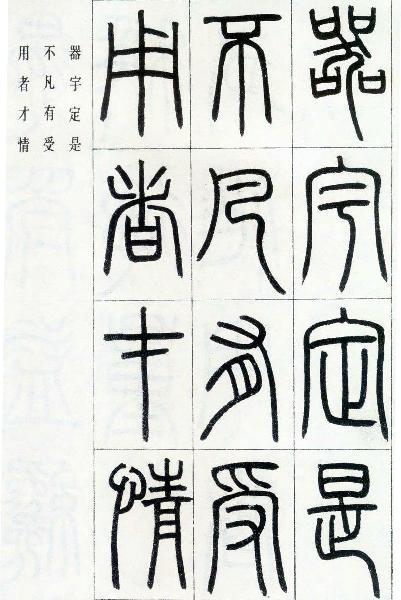 器宇定是
不凡有受
用者才情
器宇定是
不凡有受
用者才情